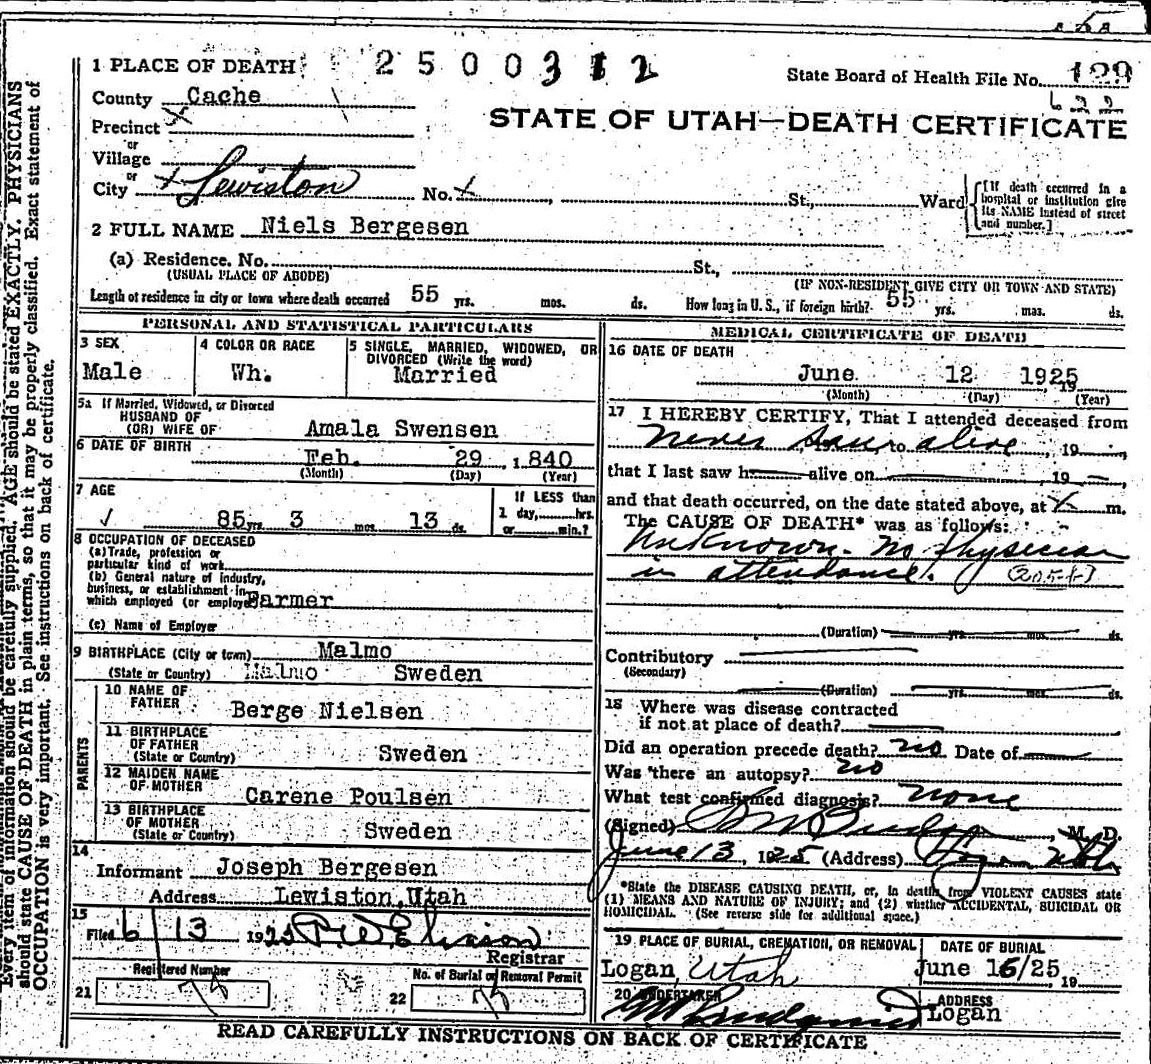 1 PLACE OF DEATH 2 5 0 0 3 1 2 State Board of Health File No. 129
622
County Cache
STATE OF UTAH—DEATH CERTIFICATE
Precinct X
or
Village
or
City + Lewiston No. + St., Ward [If death occurred in a hospital or institution give its NAME instead of street and number.]
2 FULL NAME Niels Bergesen
(a) Residence. No. St.,
(USUAL PLACE OF ABODE) (IF NON-RESIDENT GIVE CITY OR TOWN AND STATE)
Length of residence in city or town where death occurred 55 yrs. mos. ds. How long in U. S., if foreign birth? 55 yrs. mos. ds.
PERSONAL AND STATISTICAL PARTICULARS
3 SEX
Male
4 COLOR OR RACE
Wh.
5 SINGLE, MARRIED, WIDOWED, OR
DIVORCED (Write the word)
Married
5a If Married, Widowed, or Divorced
HUSBAND OF
(OR) WIFE OF Amala Swensen
6 DATE OF BIRTH
Feb. 29, 1840
(Month) (Day) (Year)
7 AGE
✓ 85 yrs. 3 mos. 13 ds.
If LESS than
1 day, hrs.
or min.?
8 OCCUPATION OF DECEASED
(a) Trade, profession or
particular kind of work
(b) General nature of industry,
business, or establishment in
which employed (or employer) Farmer
(c) Name of Employer
9 BIRTHPLACE (City or town) Malmo
(State or Country) Malmo Sweden
PARENTS
10 NAME OF
FATHER Berge Nielsen
11 BIRTHPLACE
OF FATHER
(State or Country) Sweden
12 MAIDEN NAME
OF MOTHER Carene Poulsen
13 BIRTHPLACE
OF MOTHER
(State or Country) Sweden
14
Informant Joseph Bergesen
Address Lewiston, Utah
15
Filed 6/13 1925
Registrar
Registered Number No. of Burial or Removal Permit
21 22
MEDICAL CERTIFICATE OF DEATH
16 DATE OF DEATH
June 12 1925
19
(Month) (Day) (Year)
17 I HEREBY CERTIFY, That I attended deceased from
never saw, to alive, 19
that I last saw h alive on , 19
and that death occurred, on the date stated above, at X m.
The CAUSE OF DEATH* was as follows:
Unknown. No physician
in attendance.
(Duration) yrs. mos. ds.
Contributory
(Secondary)
(Duration) yrs. mos. ds.
18 Where was disease contracted
if not at place of death?
Did an operation precede death? no Date of
Was there an autopsy? no
What test confirmed diagnosis? none
(Signed) , M. D.
June 13, 1925 (Address) Utah
*State the DISEASE CAUSING DEATH, or, in deaths from VIOLENT CAUSES state
(1) MEANS AND NATURE OF INJURY; and (2) whether ACCIDENTAL, SUICIDAL OR
HOMICIDAL. (See reverse side for additional space.)
19 PLACE OF BURIAL, CREMATION, OR REMOVAL
Logan, Utah
DATE OF BURIAL
June 16/25, 19
20 UNDERTAKER
ADDRESS
Logan
READ CAREFULLY INSTRUCTIONS ON BACK OF CERTIFICATE
Every item of information should be carefully supplied. AGE should be stated EXACTLY. PHYSICIANS
should state CAUSE OF DEATH in plain terms, so that it may be properly classified. Exact statement of
OCCUPATION is very important. See instructions on back of certificate.